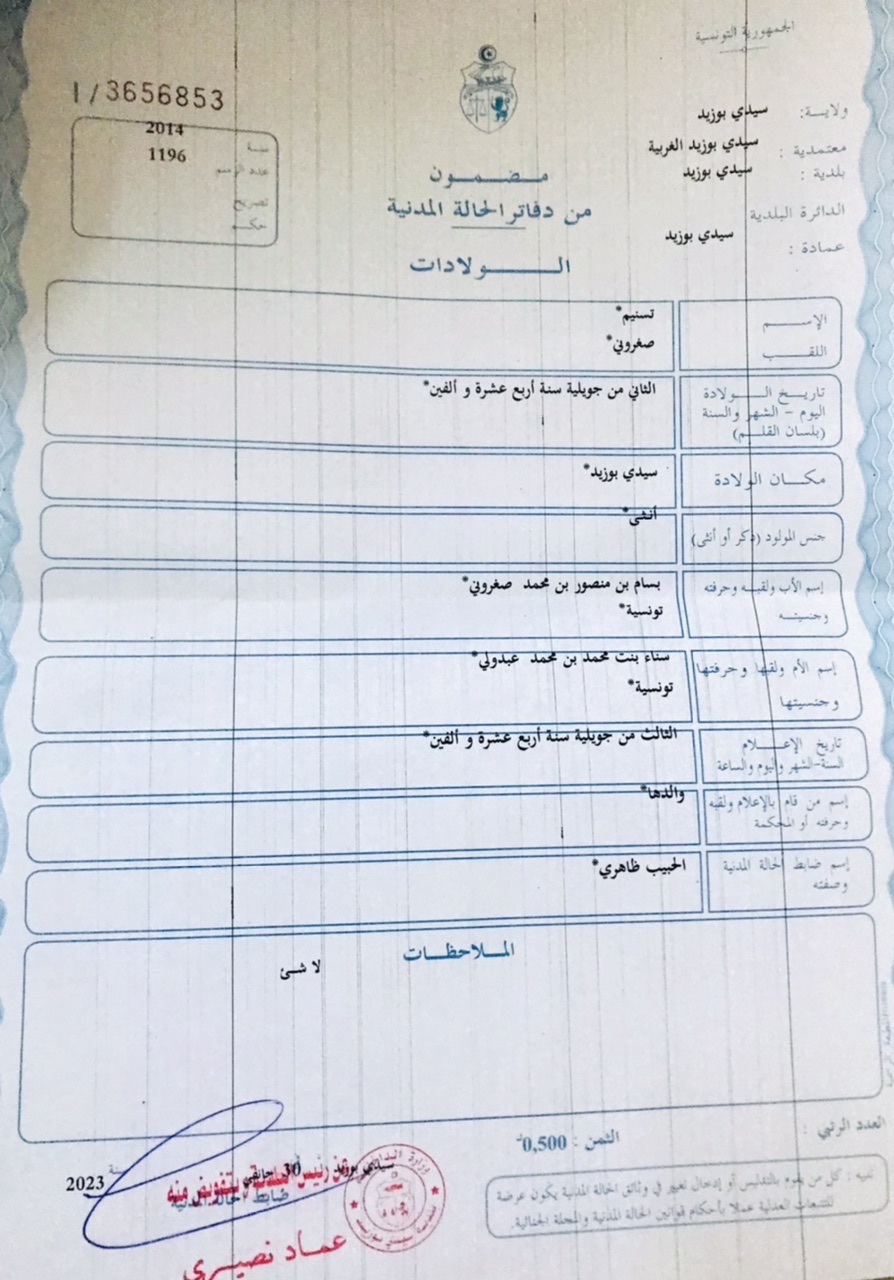 الجمهورية التونسية
ولاية: سيدي بوزيد
معتمدية : سيدي بوزيد الغربية
بلدية : سيدي بوزيد
الدائرة البلدية
عمادة : سيدي بوزيد
I / 3656853
سنة 2014
عدد الرسم 1196
تصريح
حكم
مضمون
من دفاتر الحالة المدنية
الولادات
الإسم تسنيم*
اللقب صغروني*
تاريخ الولادة
اليوم - الشهر والسنة
(بلسان القلم)
الثاني من جويلية سنة أربع عشرة و ألفين*
مكان الولادة سيدي بوزيد*
جنس المولود (ذكر أو أنثى) أنثى*
إسم الأب ولقبه وحرفته بسام بن منصور بن محمد صغروني*
وجنسيته تونسية*
إسم الأم ولقبها وحرفتها سناء بنت محمد بن محمد عبدولي*
وجنسيتها تونسية*
تاريخ الإعلام
السنة-الشهر واليوم والساعة
الثالث من جويلية سنة أربع عشرة و ألفين*
إسم من قام بالإعلام ولقبه
وحرفته أو المحكمة
والدها*
إسم ضابط الحالة المدنية
وصفته
الحبيب ظاهري*
الملاحظات
لا شئ
العدد الرتبي :
الثمن : 0,500د
تنبيه : كل من يقوم بالتدليس أو إدخال تغيير في وثائق الحالة المدنية يكون عرضة
للتتبعات العدلية عملا بأحكام قوانين الحالة المدنية والمجلة الجنائية.
سيدي بوزيد 30 جانفي سنة 2023
عن رئيس البلدية وبتفويض منه
ضابط الحالة المدنية
عماد نصيري